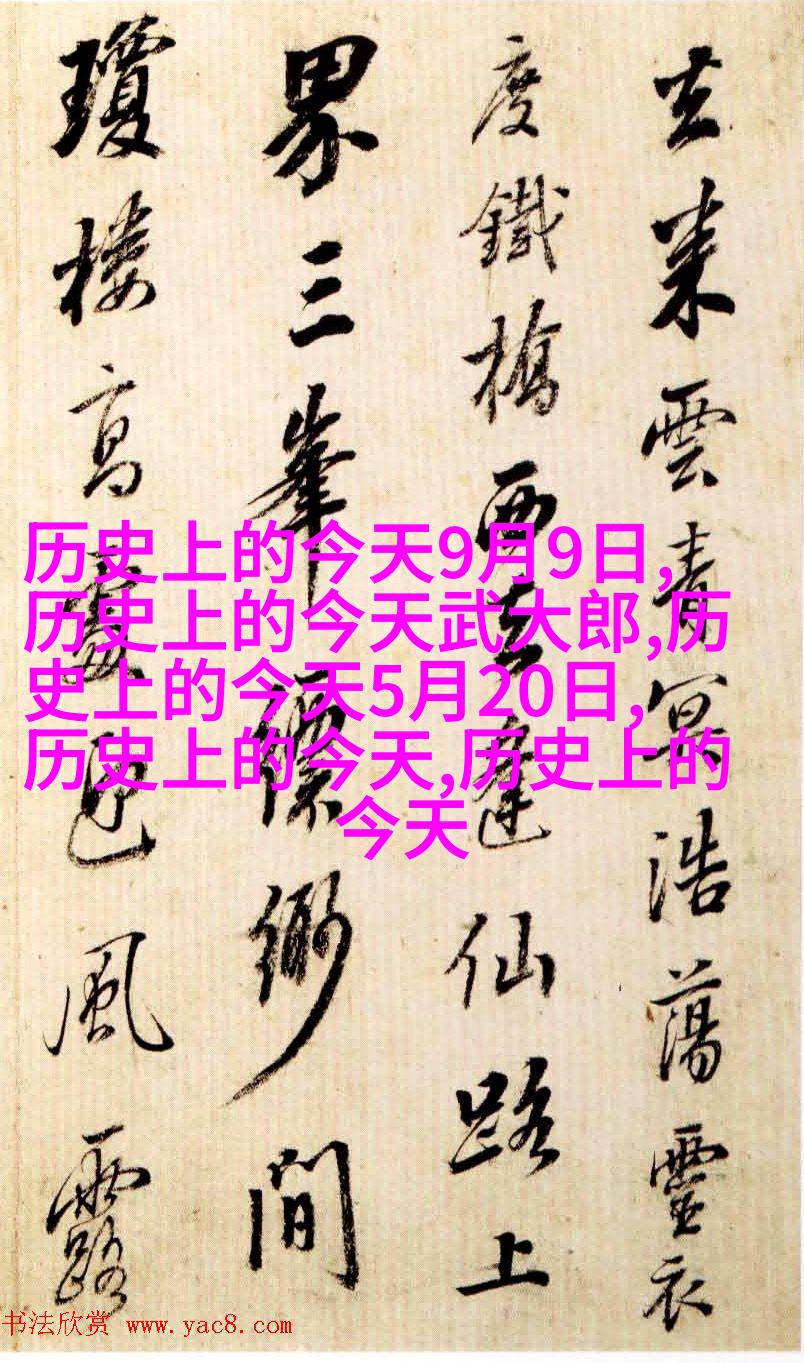 去来雲青冥浩蕩靈衣
度鐵橋西去逢仙路上
界三峯縹緲間
瓊楼高處風露
历史上的今天9月9日,
历史上的今天武大郎,历
史上的今天5月20日,
历史上的今天,历史上的
今天
书法欣赏 www.yac8.com